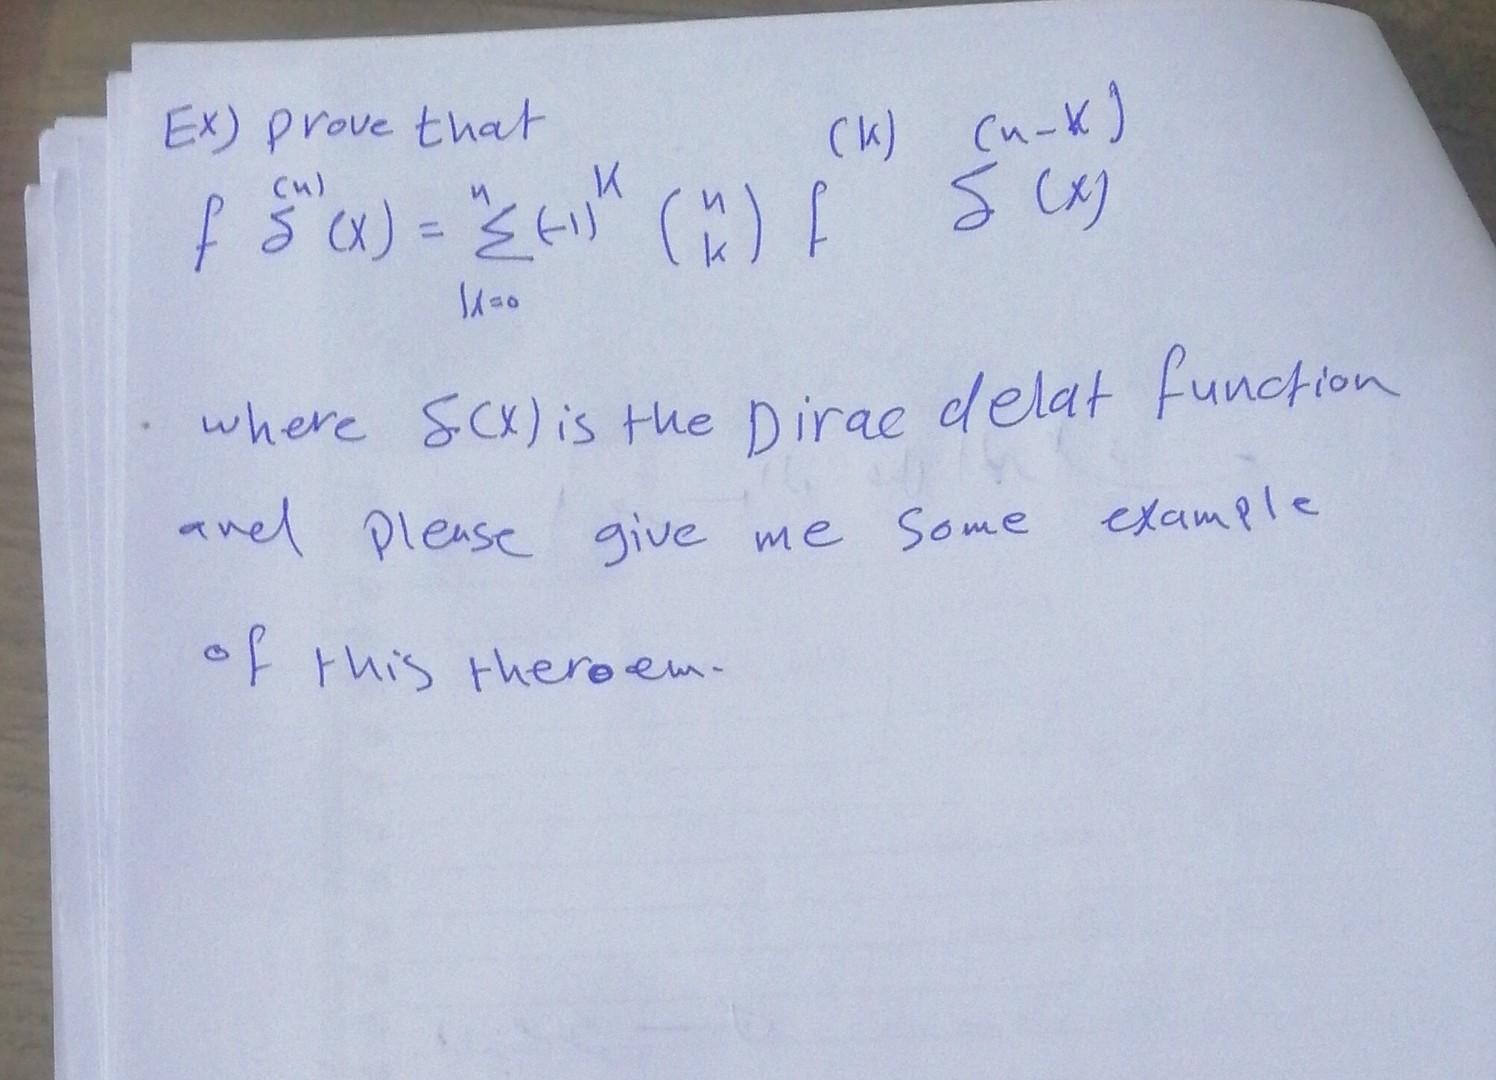 Ex) prove that
f δ^(n)(x) = Σ_{k=0}^{n} (-1)^k (n k) f^(k) δ^(n-k)(x)
where δ(x) is the Dirac delat function
and please give me some example
of this theroem.